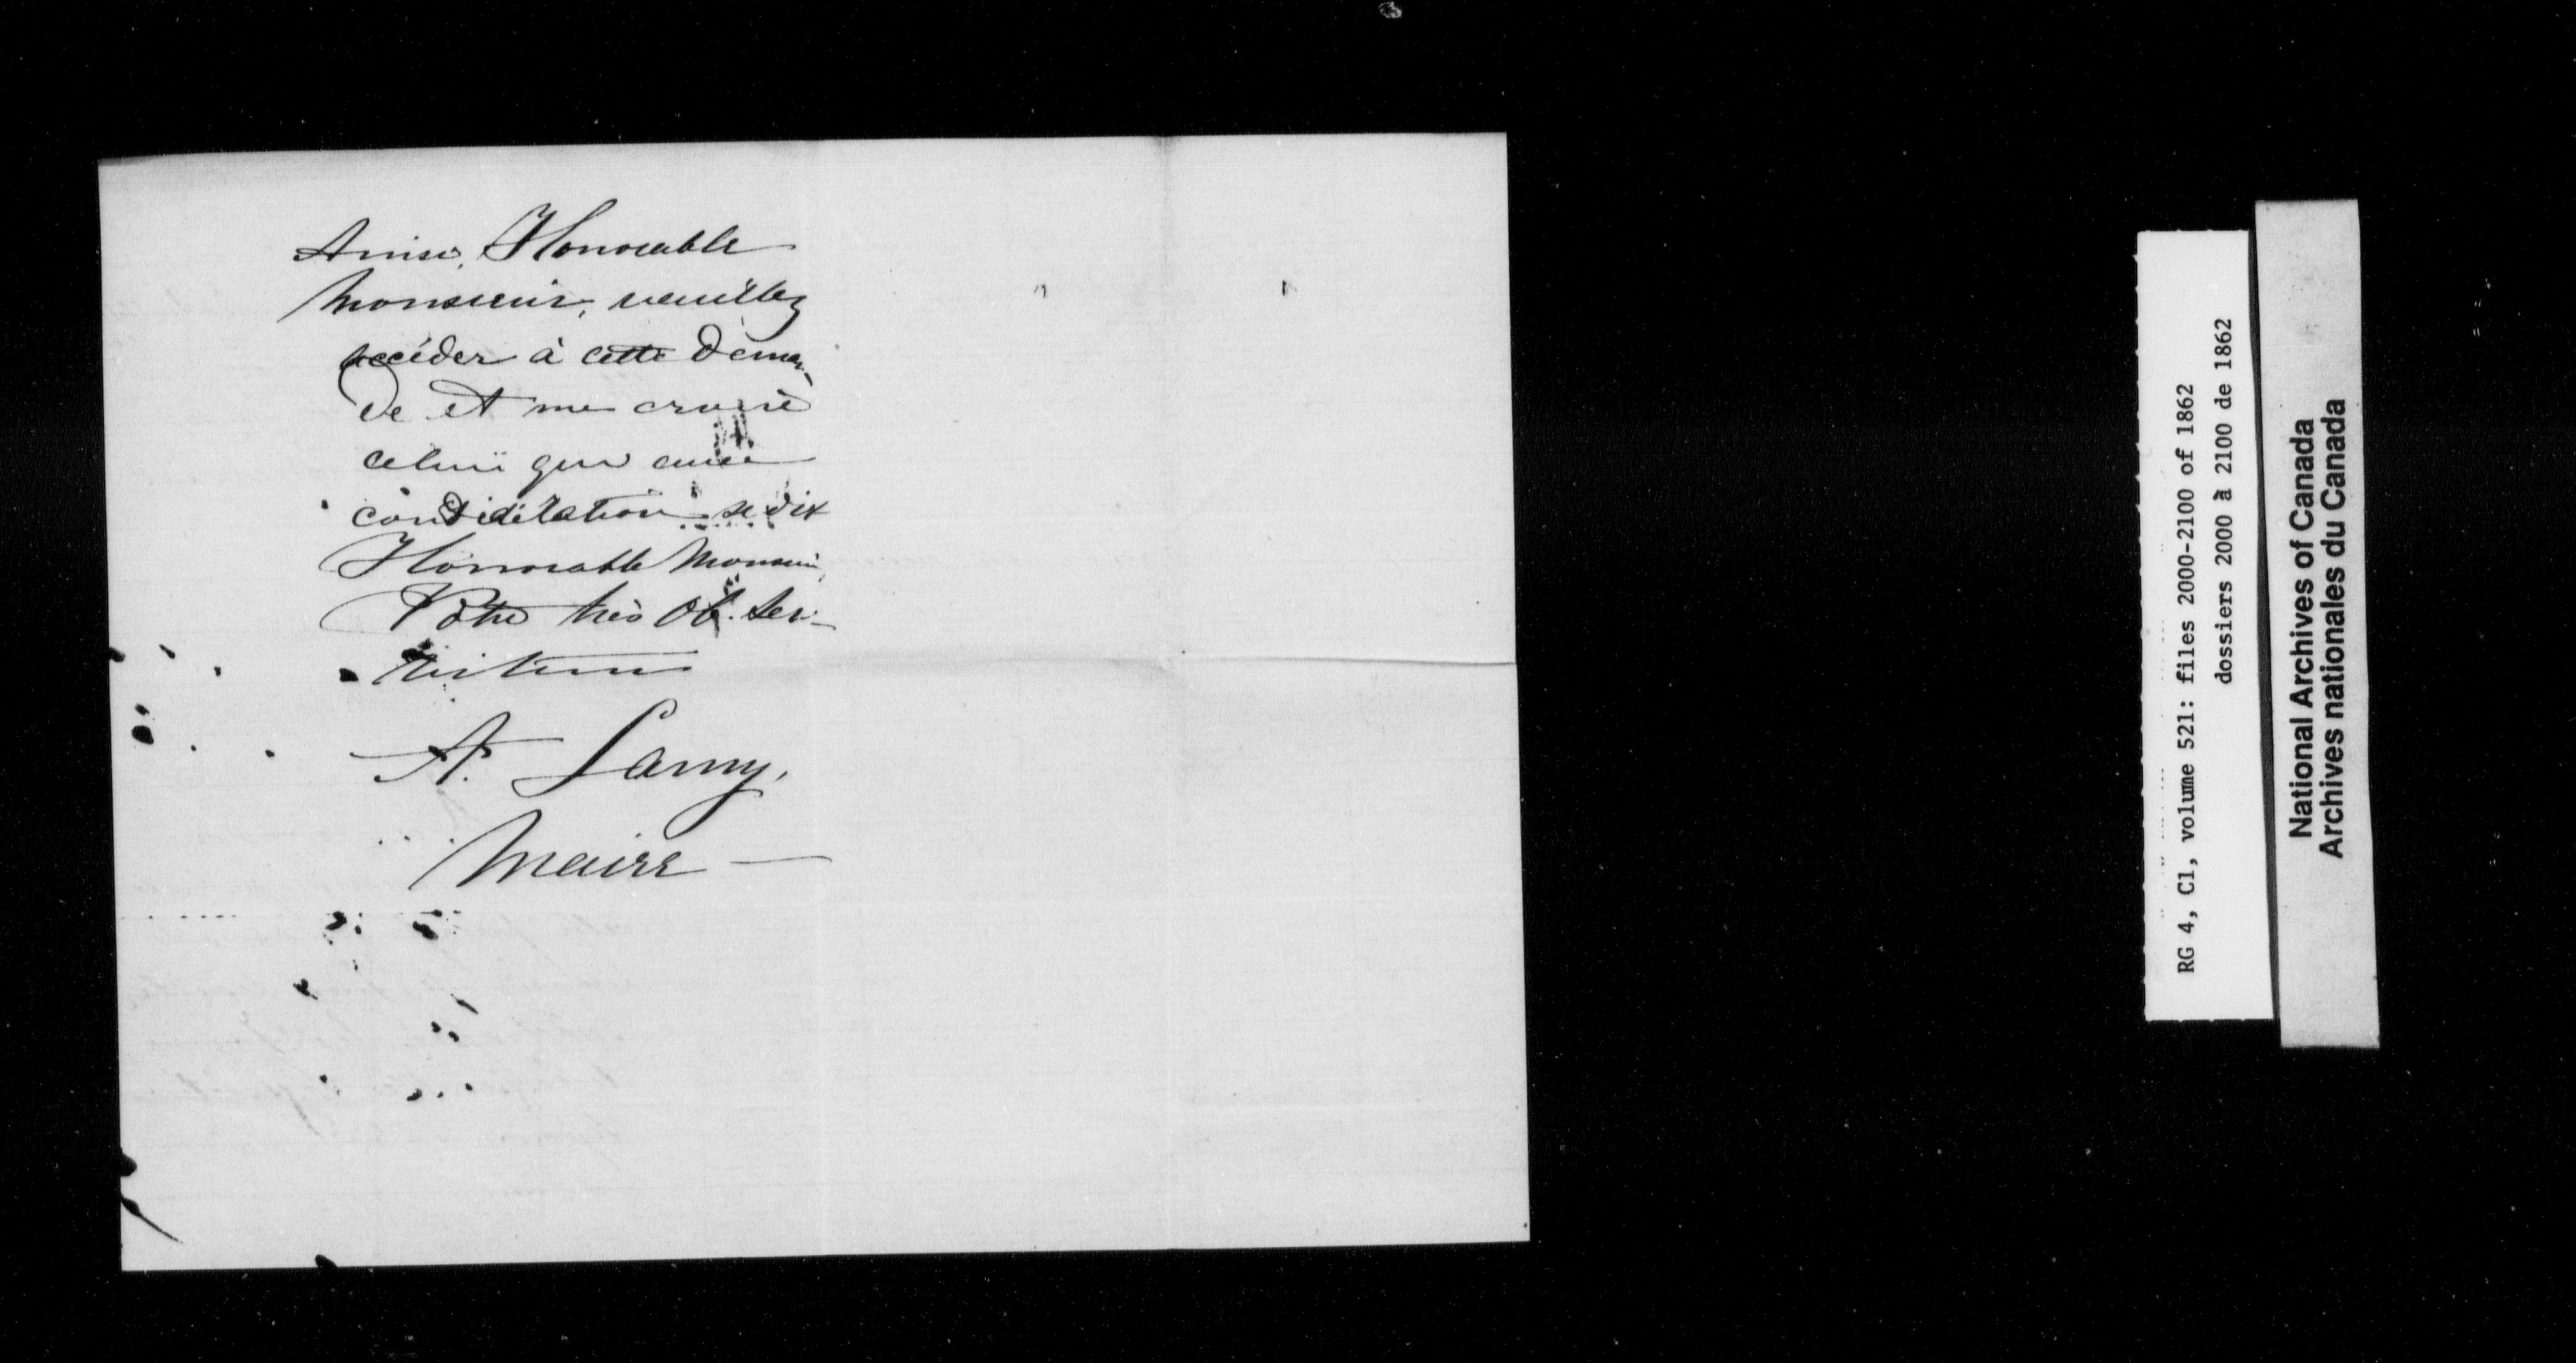 Ainsi, Honorable
Monsieur, veuillez
accéder à cette deman-
de et me croire
celui qui avec
considération se dit
Honorable Monsieur,
Votre très Ob. Ser-
viteur
A. Lamy,
Maire —
RG 4, C1, volume 521: files 2000-2100 of 1862
dossiers 2000 à 2100 de 1862
National Archives of Canada
Archives nationales du Canada